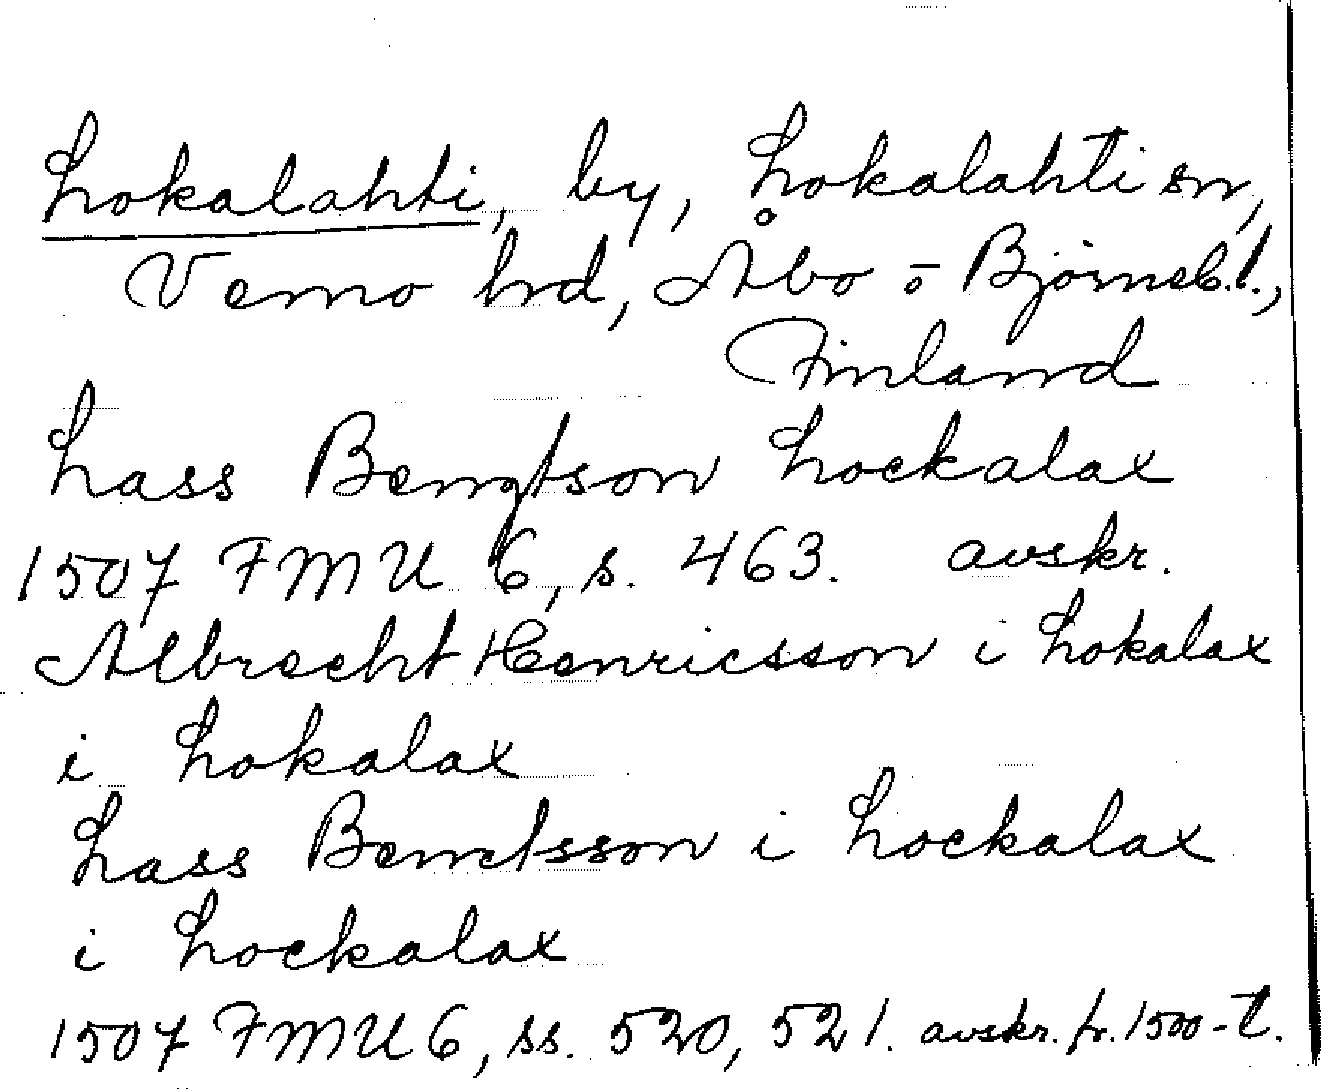 Lokalahti, by, Lokalahti sn,
Vemo hrd, Åbo o Björneb.l.,
Finland
Lass Bengtson Lockalax
1507 FMU 6, s. 463. avskr.
Albrecht Henricsson i Lokalax
i Lokalax
Lass Benctsson i Lockalax
i Lockalax
1507 FMU 6, ss. 520, 521. avskr. fr. 1500-t.